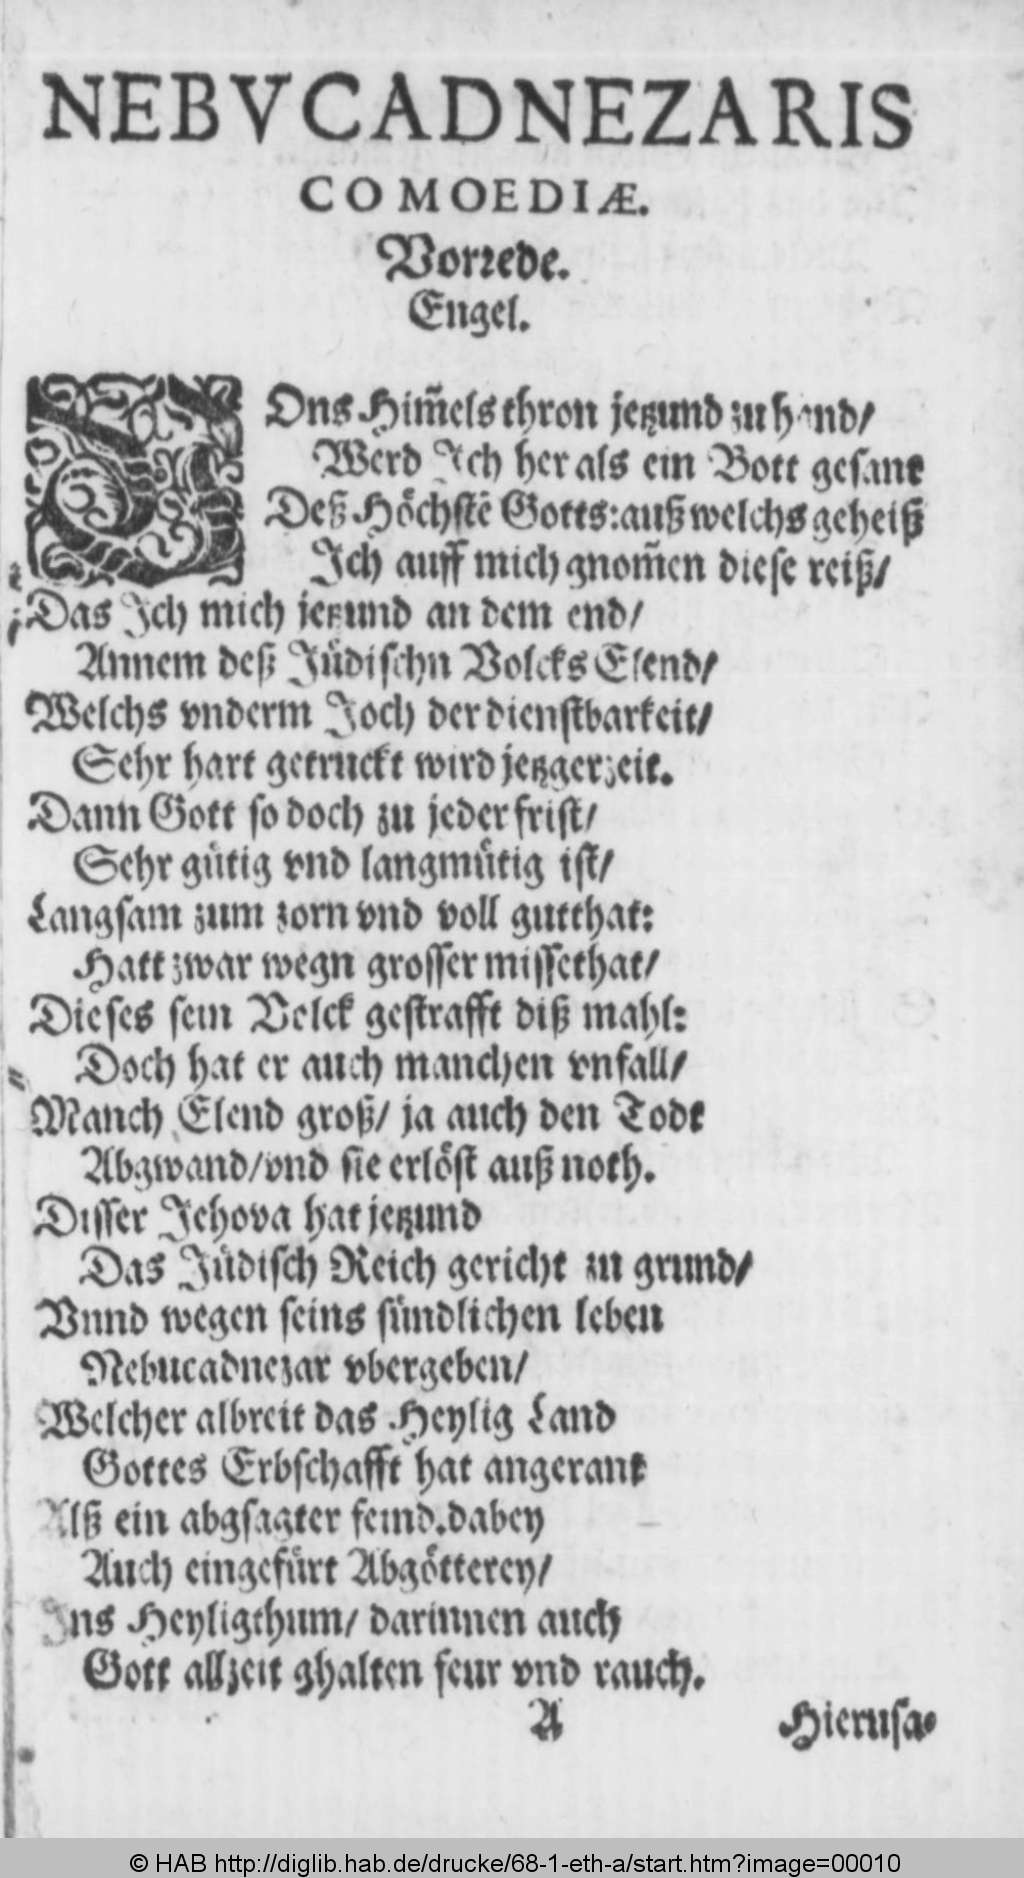 NEBVCADNEZARIS
COMOEDIÆ.
Vorrede.
Engel.
VOns Him̄elsthron jetzund zu hand/
Werd Ich her als ein Bott gesant
Deß Höchstē Gotts: auß welchs geheiß
Ich auff mich gnom̄en diese reiß/
Das Ich mich jetzund an dem end/
Annem deß Jüdischn Volcks Elend/
Welchs vnderm Joch der dienstbarkeit/
Sehr hart getruckt wird jetzger zeit.
Dann Gott so doch zu jeder frist/
Sehr gütig vnd langmütig ist/
Langsam zum zorn vnd voll gutthat:
Hatt zwar wegn grosser missethat/
Dieses sein Volck gestrafft diß mahl:
Doch hat er auch manchen vnfall/
Manch Elend groß/ ja auch den Todt
Abgwand/ vnd sie erlöst auß noth.
Disser Jehova hat jetzund
Das Jüdisch Reich gericht zu grund/
Vnnd wegen seins sündlichen leben
Nebucadnezar vbergeben/
Welcher albreit das Heylig Land
Gottes Erbschafft hat angerant
Alß ein abgsagter feind. dabey
Auch eingefürt Abgötterey/
Ins Heyligthum/ darinnen auch
Gott allzeit ghalten feur vnd rauch.
A Hierusa-
© HAB http://diglib.hab.de/drucke/68-1-eth-a/start.htm?image=00010